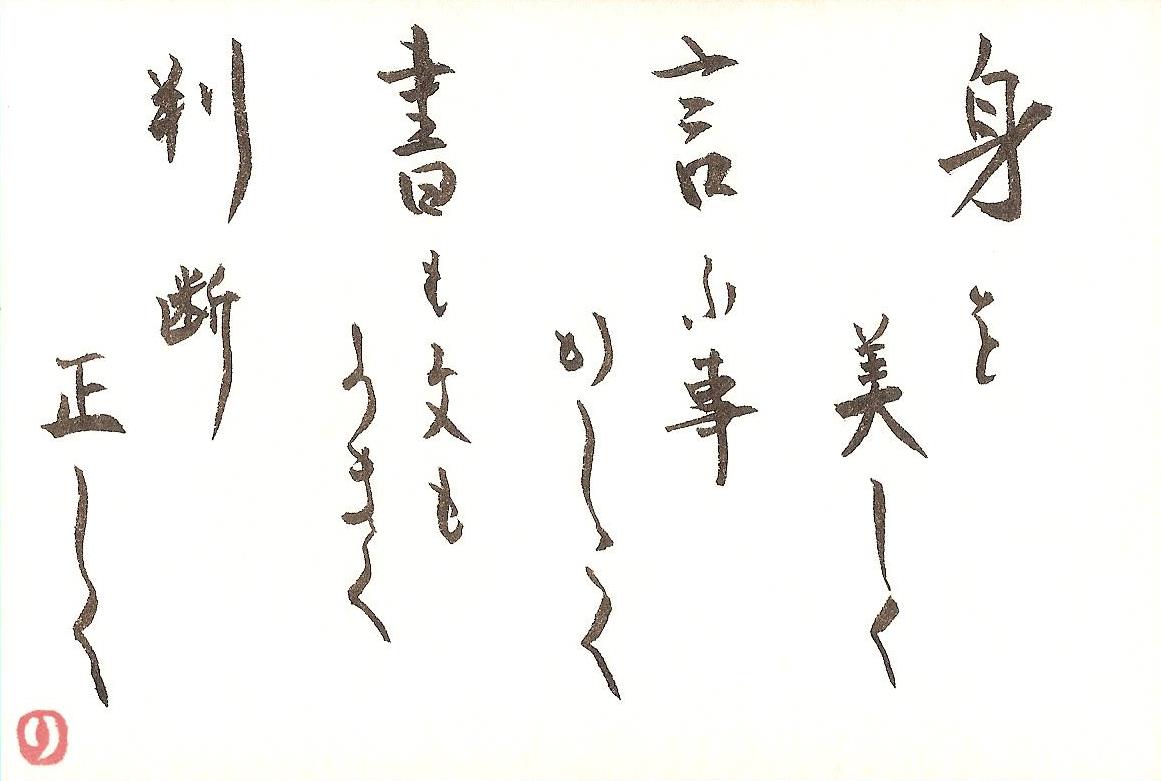 身を
美しく
言ふ事
かしこく
書も文も
うまく
判断
正しく
り